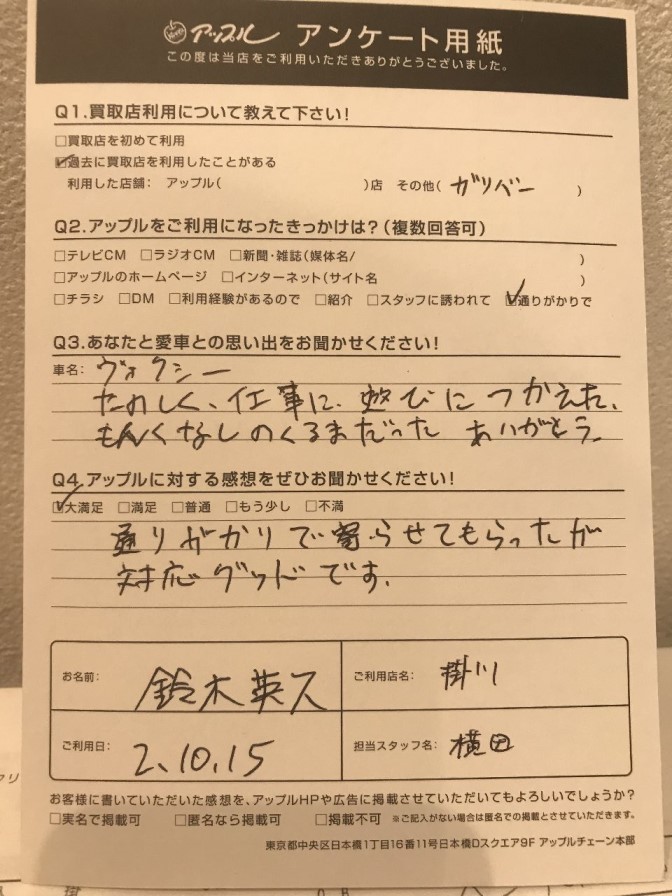 アップル アンケート用紙
この度は当店をご利用いただきありがとうございました。
Q1.買取店利用について教えて下さい!
□買取店を初めて利用
☑過去に買取店を利用したことがある
利用した店舗: アップル( )店 その他( ガリバー )
Q2.アップルをご利用になったきっかけは?(複数回答可)
□テレビCM □ラジオCM □新聞・雑誌(媒体名/ )
□アップルのホームページ □インターネット(サイト名 )
□チラシ □DM □利用経験があるので □紹介 □スタッフに誘われて ☑通りがかりで
Q3.あなたと愛車との思い出をお聞かせください!
車名: ヴォクシー
たのしく、仕事に、遊びにつかえた、
もんくなしのくるまだった ありがとう。
Q4.アップルに対する感想をぜひお聞かせください!
☑大満足 □満足 □普通 □もう少し □不満
通りがかりで寄らせてもらったが
対応グッドです.
お名前: 鈴木英久
ご利用店名: 掛川
ご利用日: 2.10.15
担当スタッフ名: 横田
お客様に書いていただいた感想を、アップルHPや広告に掲載させていただいてもよろしいでしょうか?
□実名で掲載可 □匿名なら掲載可 □掲載不可 ※ご記入がない場合は匿名での掲載とさせていただきます。
東京都中央区日本橋1丁目16番11号日本橋Dスクエア9F アップルチェーン本部